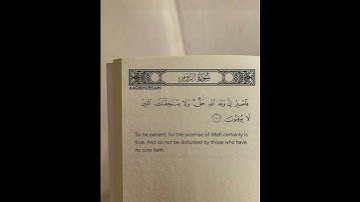 سُورَةُ الرُّومِ
AAQIBHUSSAIN
فَاصْبِرْ إِنَّ وَعْدَ اللَّهِ حَقٌّ وَلَا يَسْتَخِفَّنَّكَ الَّذِينَ
لَا يُوقِنُونَ ٦٠
So be patient, for the promise of Allah certainly is
true. And do not be disturbed by those who have
no sure faith.